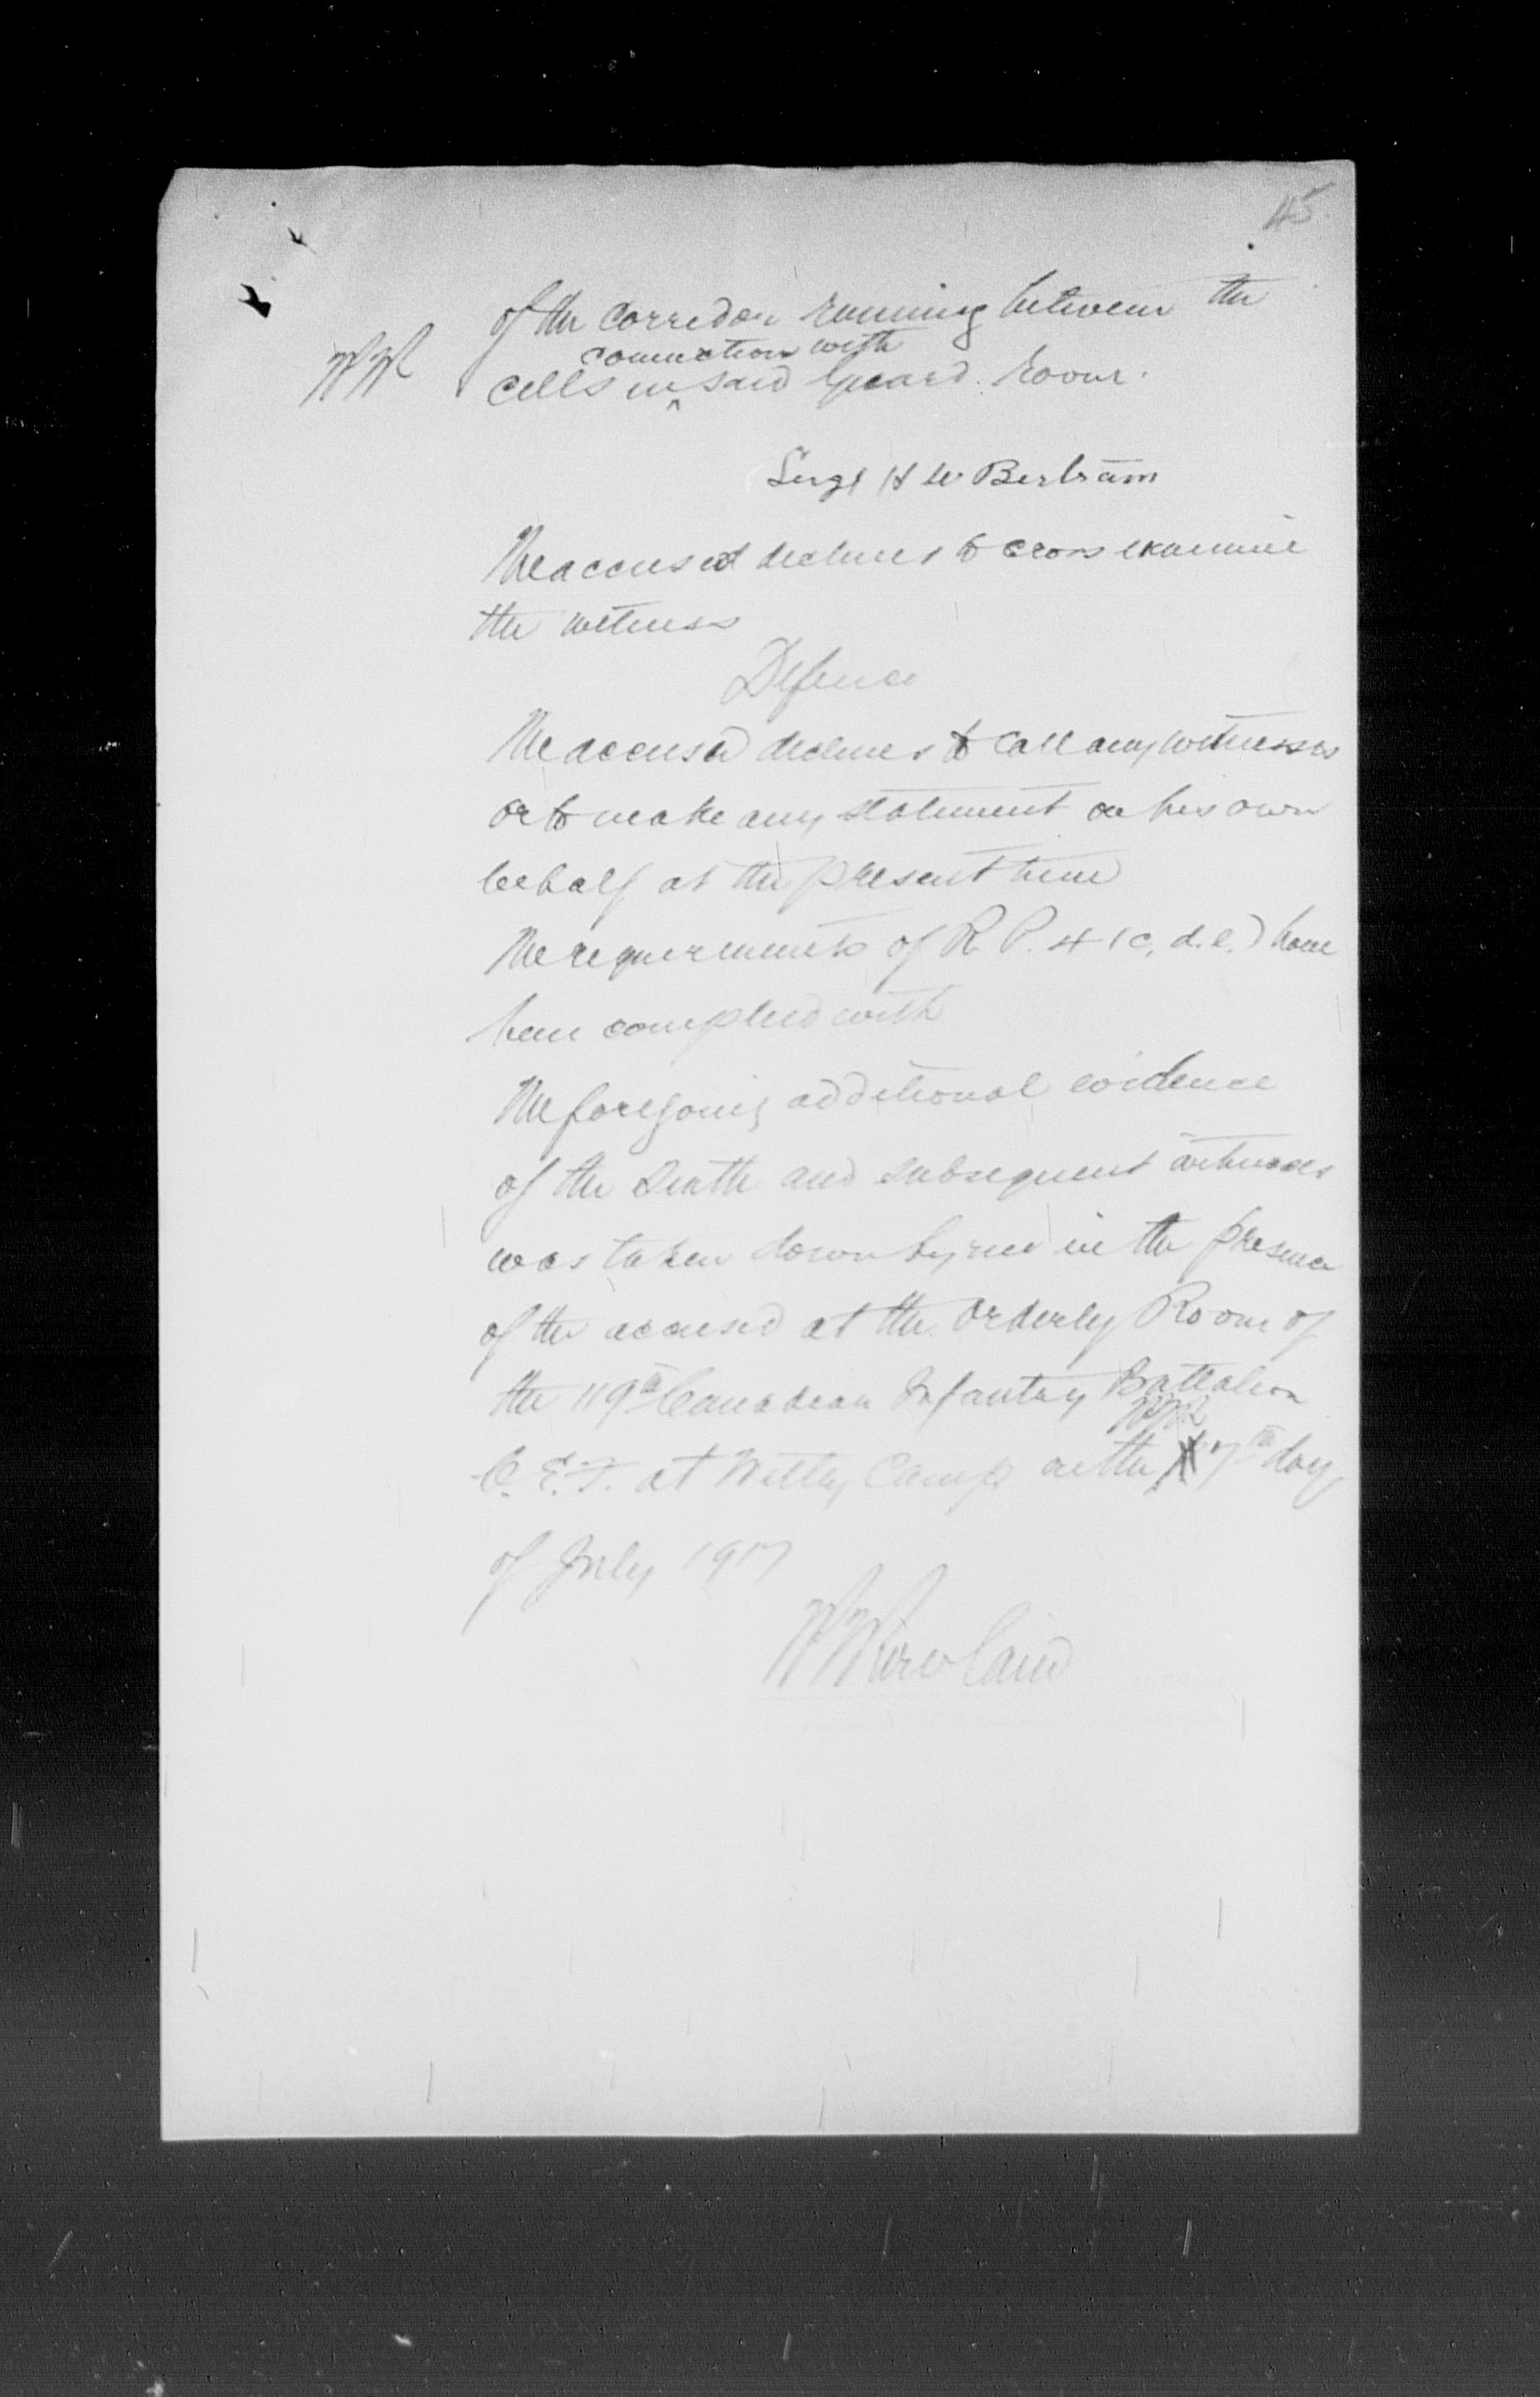 45.
of the corridor running between the
connection with
cells in ^ said Guard Room.
Sergt H W Bertram
The accused declines to cross examine
the witness
Defence
The accused declines to call any witnesses
or to make any statement on his own
behalf at the present time
The requirements of R. P. 4 (c, d. e.) have
been complied with
The foregoing additional evidence
of the and subsequent witnesses
was taken down by me in the presence
of the accused at the Orderly Room of
the 119th Canadian Infantry Battalion
C. E. F. at Witley Camp on the 7th day
of July 1917